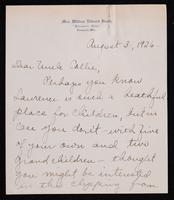 Mrs. William Edward
August 3, 1926.
Dear Uncle Collie,
Perhaps you know
Lawrence is such a healthful
place for children, but in
case you don't - with five
of your own and two
grandchildren - thought
you might be interested
in this clipping from